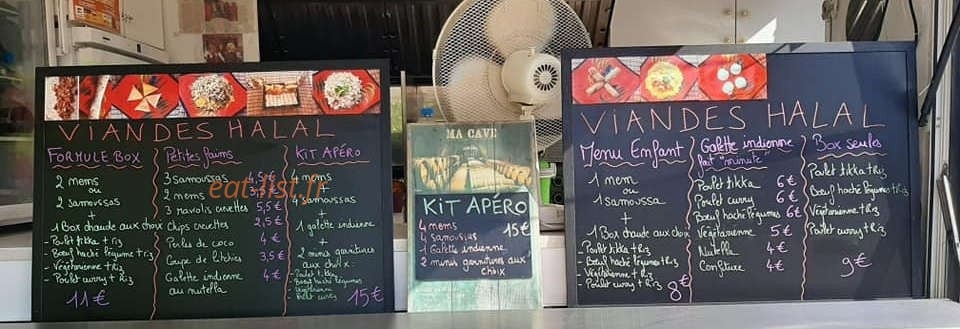 VIANDES HALAL
FORMULE BOX
2 nems
ou
2 samoussas
+
1 Box chaude aux choix
- Poulet tikka + riz
- Boeuf haché légume + Riz
- Végétarienne + Riz
- Poulet curry + Riz
11€
Petites faims
3 samoussas 4,5€
2 nems
3 raviolis crevettes 5,5€
Chips crevettes 2,5€
Perles de coco 4€
Coupe de litchies 3,5€
Galette indienne 4€
au nutella
KIT APÉRO
4 nems
4 samoussas
+
1 galette indienne
+
2 minis garnitures
aux choix:
- Poulet tikka
- Végétarienne
- Poulet curry
15€
eat-list.fr
MA CAVE
KIT APÉRO
4 nems 15€
4 samoussas
1 Galette indienne
2 minis garnitures aux
choix
VIANDES HALAL
Menu Enfant
1 nem
ou
1 samoussa
+
1 Box chaude aux choix
- Poulet tikka + Riz
- Boeuf haché légumes + Riz
- Végétarienne + Riz
- Poulet curry + Riz
8€
Galette indienne
fait "minute"
Poulet tikka 6€
Poulet curry 6€
Boeuf haché légumes 6€
Végétarienne 5€
Nutella 4€
Confiture 4€
Box seules
Poulet tikka + riz
Boeuf haché légumes + riz
Végétarienne + Riz
Poulet curry + Riz
9€